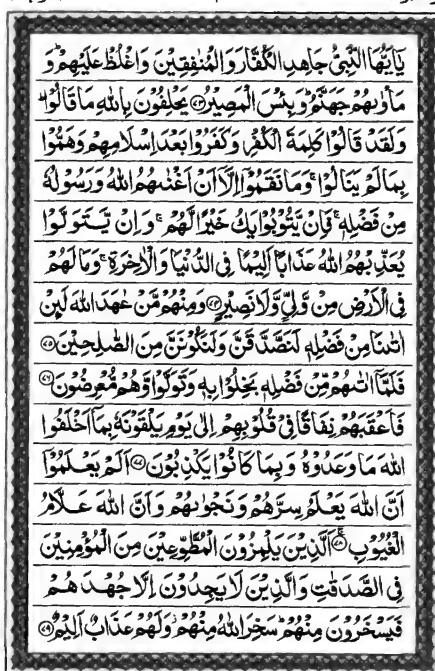 يٰۤاَيُّهَا النَّبِيُّ جَاهِدِ الْكُفَّارَ وَالْمُنٰفِقِيْنَ وَاغْلُظْ عَلَيْهِمْ ؕ وَ
مَاْوٰىهُمْ جَهَنَّمُ ؕ وَبِئْسَ الْمَصِيْرُ ﴿۷۳﴾ يَحْلِفُوْنَ بِاللّٰهِ مَا قَالُوْا ؕ
وَلَقَدْ قَالُوْا كَلِمَةَ الْكُفْرِ وَكَفَرُوْا بَعْدَ اِسْلَامِهِمْ وَهَمُّوْا
بِمَا لَمْ يَنَالُوْا ۚ وَمَا نَقَمُوْۤا اِلَّاۤ اَنْ اَغْنٰىهُمُ اللّٰهُ وَرَسُوْلُهٗ
مِنْ فَضْلِهٖ ۚ فَاِنْ يَّتُوْبُوْا يَكُ خَيْرًا لَّهُمْ ۚ وَاِنْ يَّتَوَلَّوْا
يُعَذِّبْهُمُ اللّٰهُ عَذَابًا اَلِيْمًا فِى الدُّنْيَا وَالْاٰخِرَةِ ۚ وَمَا لَهُمْ
فِى الْاَرْضِ مِنْ وَّلِىٍّ وَّلَا نَصِيْرٍ ﴿۷۴﴾ وَمِنْهُمْ مَّنْ عٰهَدَ اللّٰهَ لَئِنْ
اٰتٰىنَا مِنْ فَضْلِهٖ لَنَصَّدَّقَنَّ وَلَنَكُوْنَنَّ مِنَ الصّٰلِحِيْنَ ﴿۷۵﴾
فَلَمَّاۤ اٰتٰىهُمْ مِّنْ فَضْلِهٖ بَخِلُوْا بِهٖ وَتَوَلَّوْا وَّهُمْ مُّعْرِضُوْنَ ﴿۷۶﴾
فَاَعْقَبَهُمْ نِفَاقًا فِىْ قُلُوْبِهِمْ اِلٰى يَوْمِ يَلْقَوْنَهٗ بِمَاۤ اَخْلَفُوا
اللّٰهَ مَا وَعَدُوْهُ وَبِمَا كَانُوْا يَكْذِبُوْنَ ﴿۷۷﴾ اَلَمْ يَعْلَمُوْۤا
اَنَّ اللّٰهَ يَعْلَمُ سِرَّهُمْ وَنَجْوٰىهُمْ وَاَنَّ اللّٰهَ عَلَّامُ
الْغُيُوْبِ ﴿۷۸﴾ اَلَّذِيْنَ يَلْمِزُوْنَ الْمُطَّوِّعِيْنَ مِنَ الْمُؤْمِنِيْنَ
فِى الصَّدَقٰتِ وَالَّذِيْنَ لَا يَجِدُوْنَ اِلَّا جُهْدَهُمْ
فَيَسْخَرُوْنَ مِنْهُمْ ؕ سَخِرَ اللّٰهُ مِنْهُمْ ؗ وَلَهُمْ عَذَابٌ اَلِيْمٌ ﴿۷۹﴾